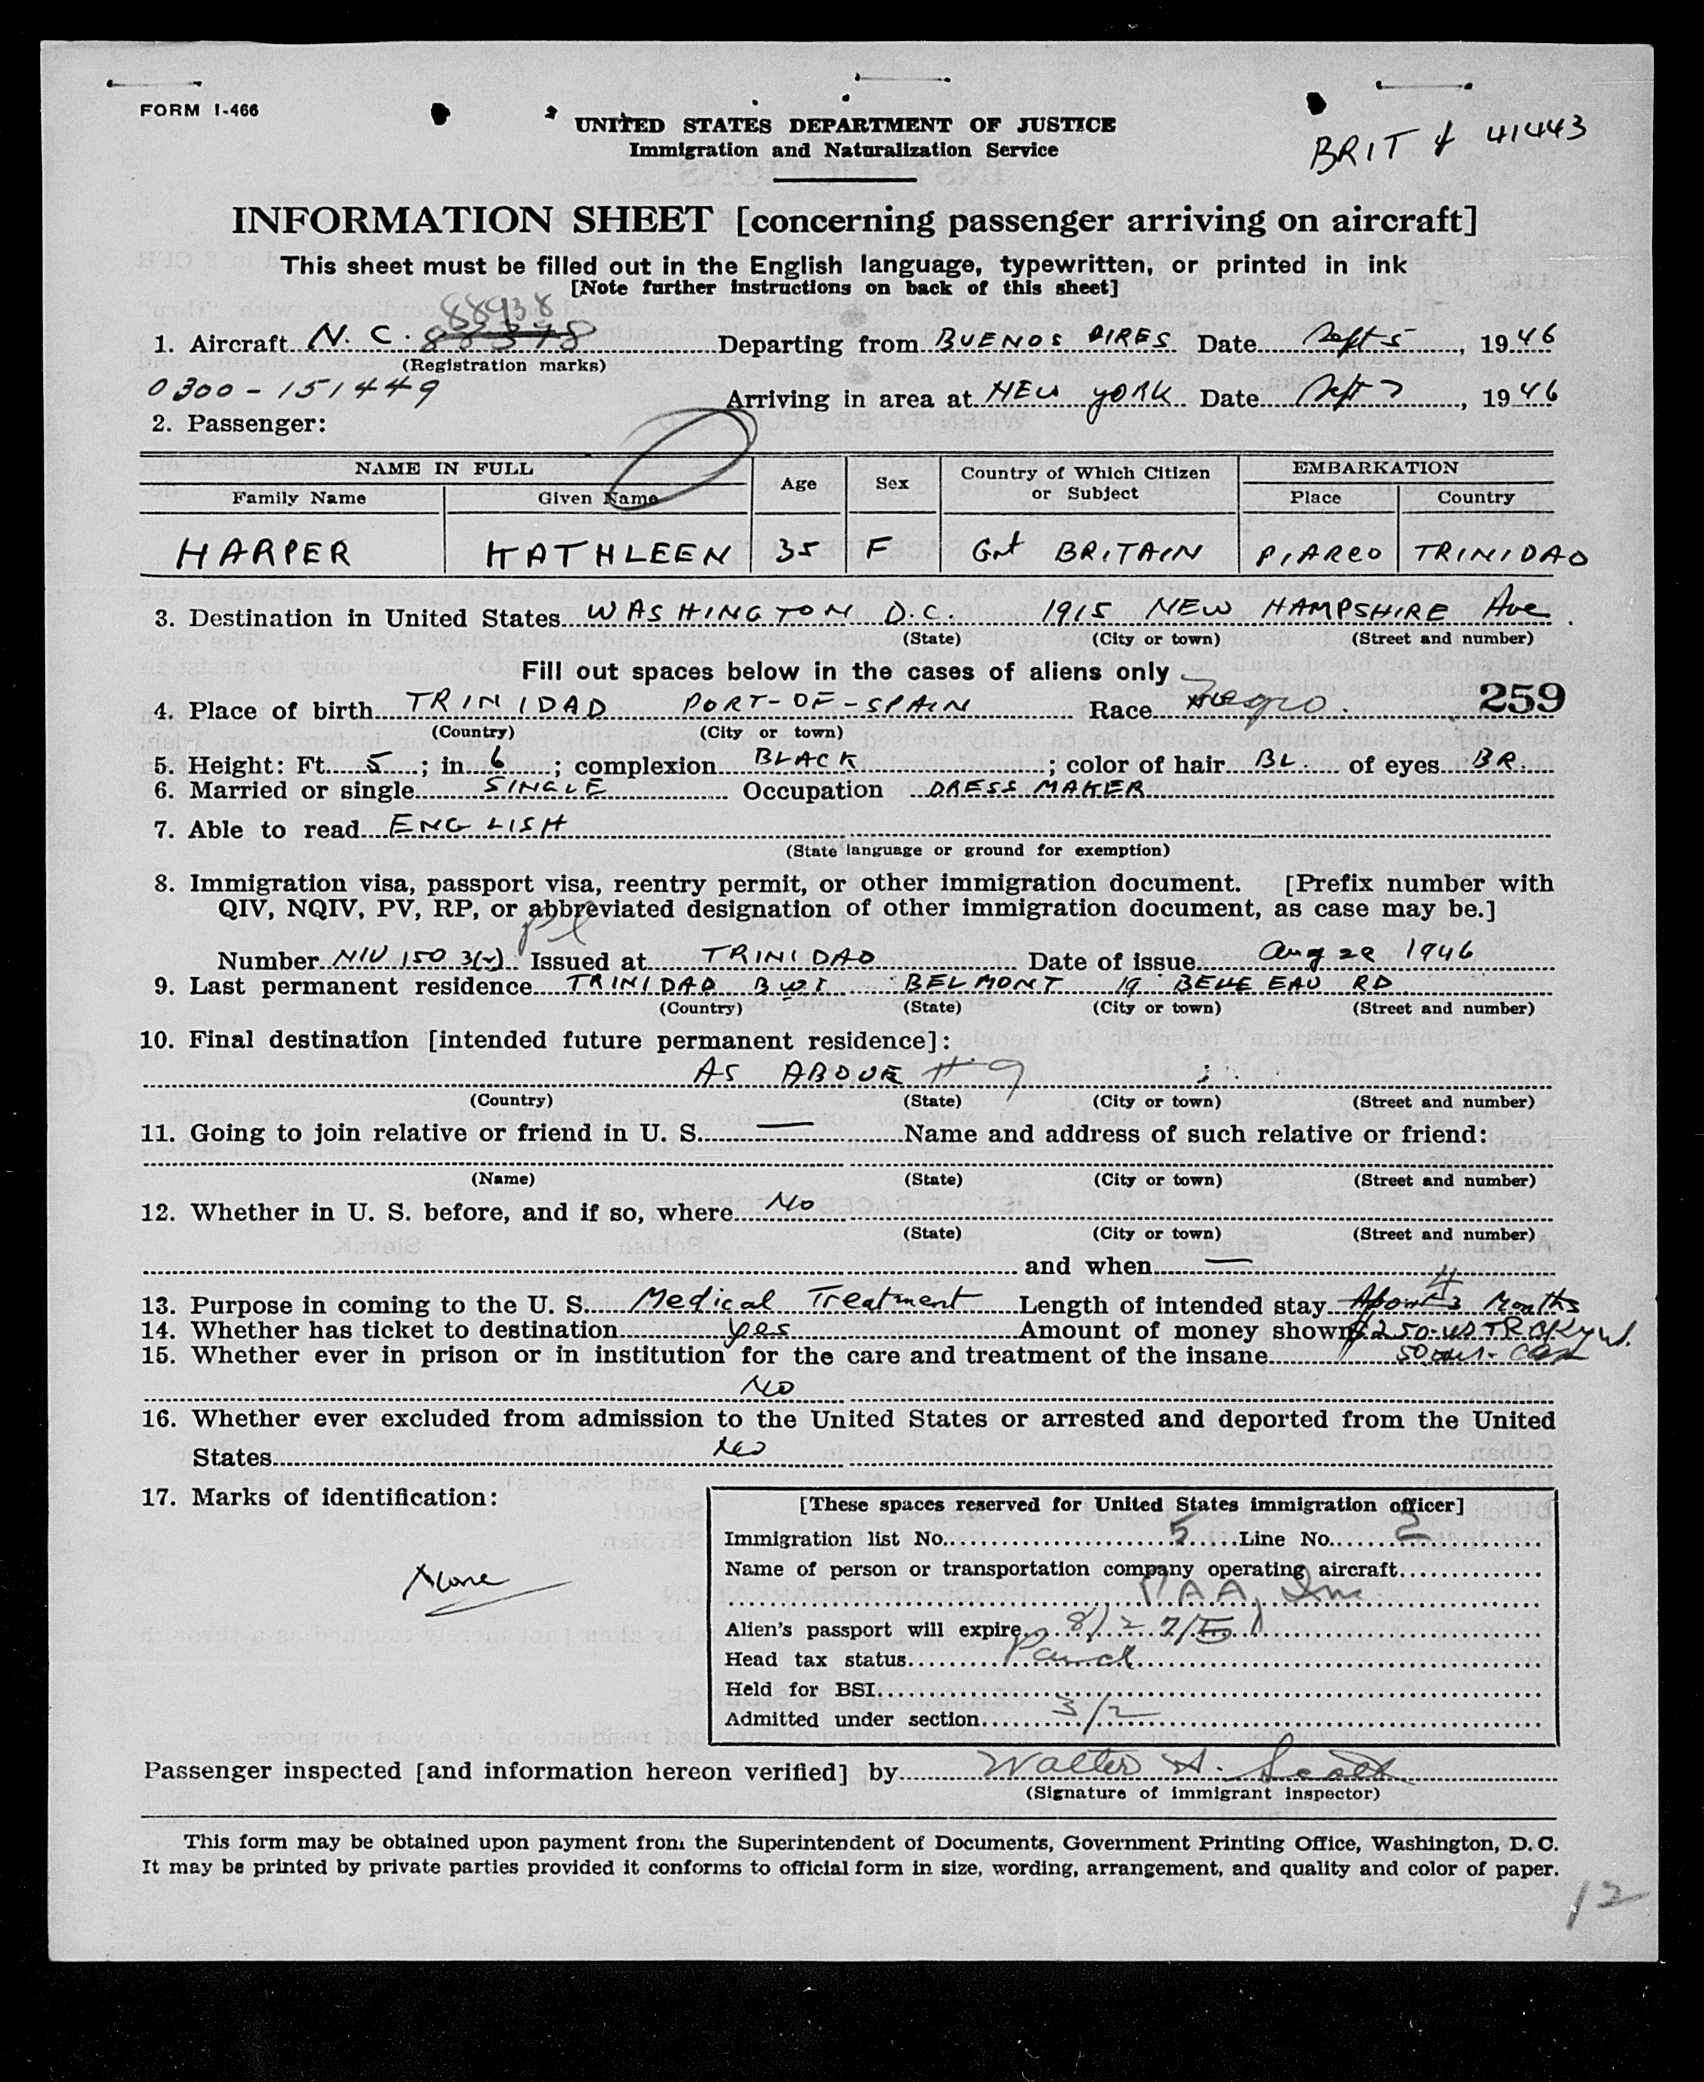 FORM I-466
UNITED STATES DEPARTMENT OF JUSTICE
Immigration and Naturalization Service
BRIT 41443
INFORMATION SHEET [concerning passenger arriving on aircraft]
This sheet must be filled out in the English language, typewritten, or printed in ink
[Note further instructions on back of this sheet]
88938
1. Aircraft N. C. 88378 Departing from BUENOS AIRES Date Sept 5, 1946
(Registration marks)
0300-151449
Arriving in area at NEW YORK Date Sept 7, 1946
2. Passenger:
NAME IN FULL Age Sex Country of Which Citizen or Subject EMBARKATION
Family Name Given Name Place Country
HARPER KATHLEEN 35 F Gt BRITAIN PIARCO TRINIDAD
3. Destination in United States WASHINGTON D.C. 1915 NEW HAMPSHIRE Ave.
(State) (City or town) (Street and number)
Fill out spaces below in the cases of aliens only
259
4. Place of birth TRINIDAD PORT-OF-SPAIN Race Negro.
(Country) (City or town)
5. Height: Ft. 5; in. 6; complexion BLACK; color of hair BL of eyes BR.
6. Married or single SINGLE Occupation DRESS MAKER
7. Able to read ENGLISH
(State language or ground for exemption)
8. Immigration visa, passport visa, reentry permit, or other immigration document. [Prefix number with
QIV, NQIV, PV, RP, or abbreviated designation of other immigration document, as case may be.]
Number NIV 150 3(2) Issued at TRINIDAD Date of issue Aug 28 1946
9. Last permanent residence TRINIDAD B.W.I. BELMONT 19 BELLE EAU RD
(Country) (State) (City or town) (Street and number)
10. Final destination [intended future permanent residence]:
AS ABOVE # 9
(Country) (State) (City or town) (Street and number)
11. Going to join relative or friend in U. S. — Name and address of such relative or friend:
(Name) (State) (City or town) (Street and number)
12. Whether in U. S. before, and if so, where No
(State) (City or town) (Street and number)
and when —
13. Purpose in coming to the U. S. Medical Treatment Length of intended stay About 3 4 Months
14. Whether has ticket to destination yes Amount of money shown $250. US TR
15. Whether ever in prison or in institution for the care and treatment of the insane 50 cash
No
16. Whether ever excluded from admission to the United States or arrested and deported from the United
States No
17. Marks of identification:
None
[These spaces reserved for United States immigration officer]
Immigration list No. 5 Line No. 2
Name of person or transportation company operating aircraft
PAA, Inc
Alien's passport will expire 8/27/51
Head tax status
Held for BSI
Admitted under section 3/2
Passenger inspected [and information hereon verified] by Walter A. Scott
(Signature of immigrant inspector)
This form may be obtained upon payment from the Superintendent of Documents, Government Printing Office, Washington, D. C.
It may be printed by private parties provided it conforms to official form in size, wording, arrangement, and quality and color of paper.
12